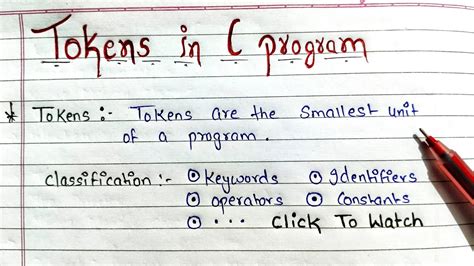 Tokens in C program
* Tokens :- Tokens are the smallest unit
of a program.
Classification :- ⊙ Keywords ⊙ Identifiers
⊙ operators ⊙ Constants
⊙ ... Click To Watch